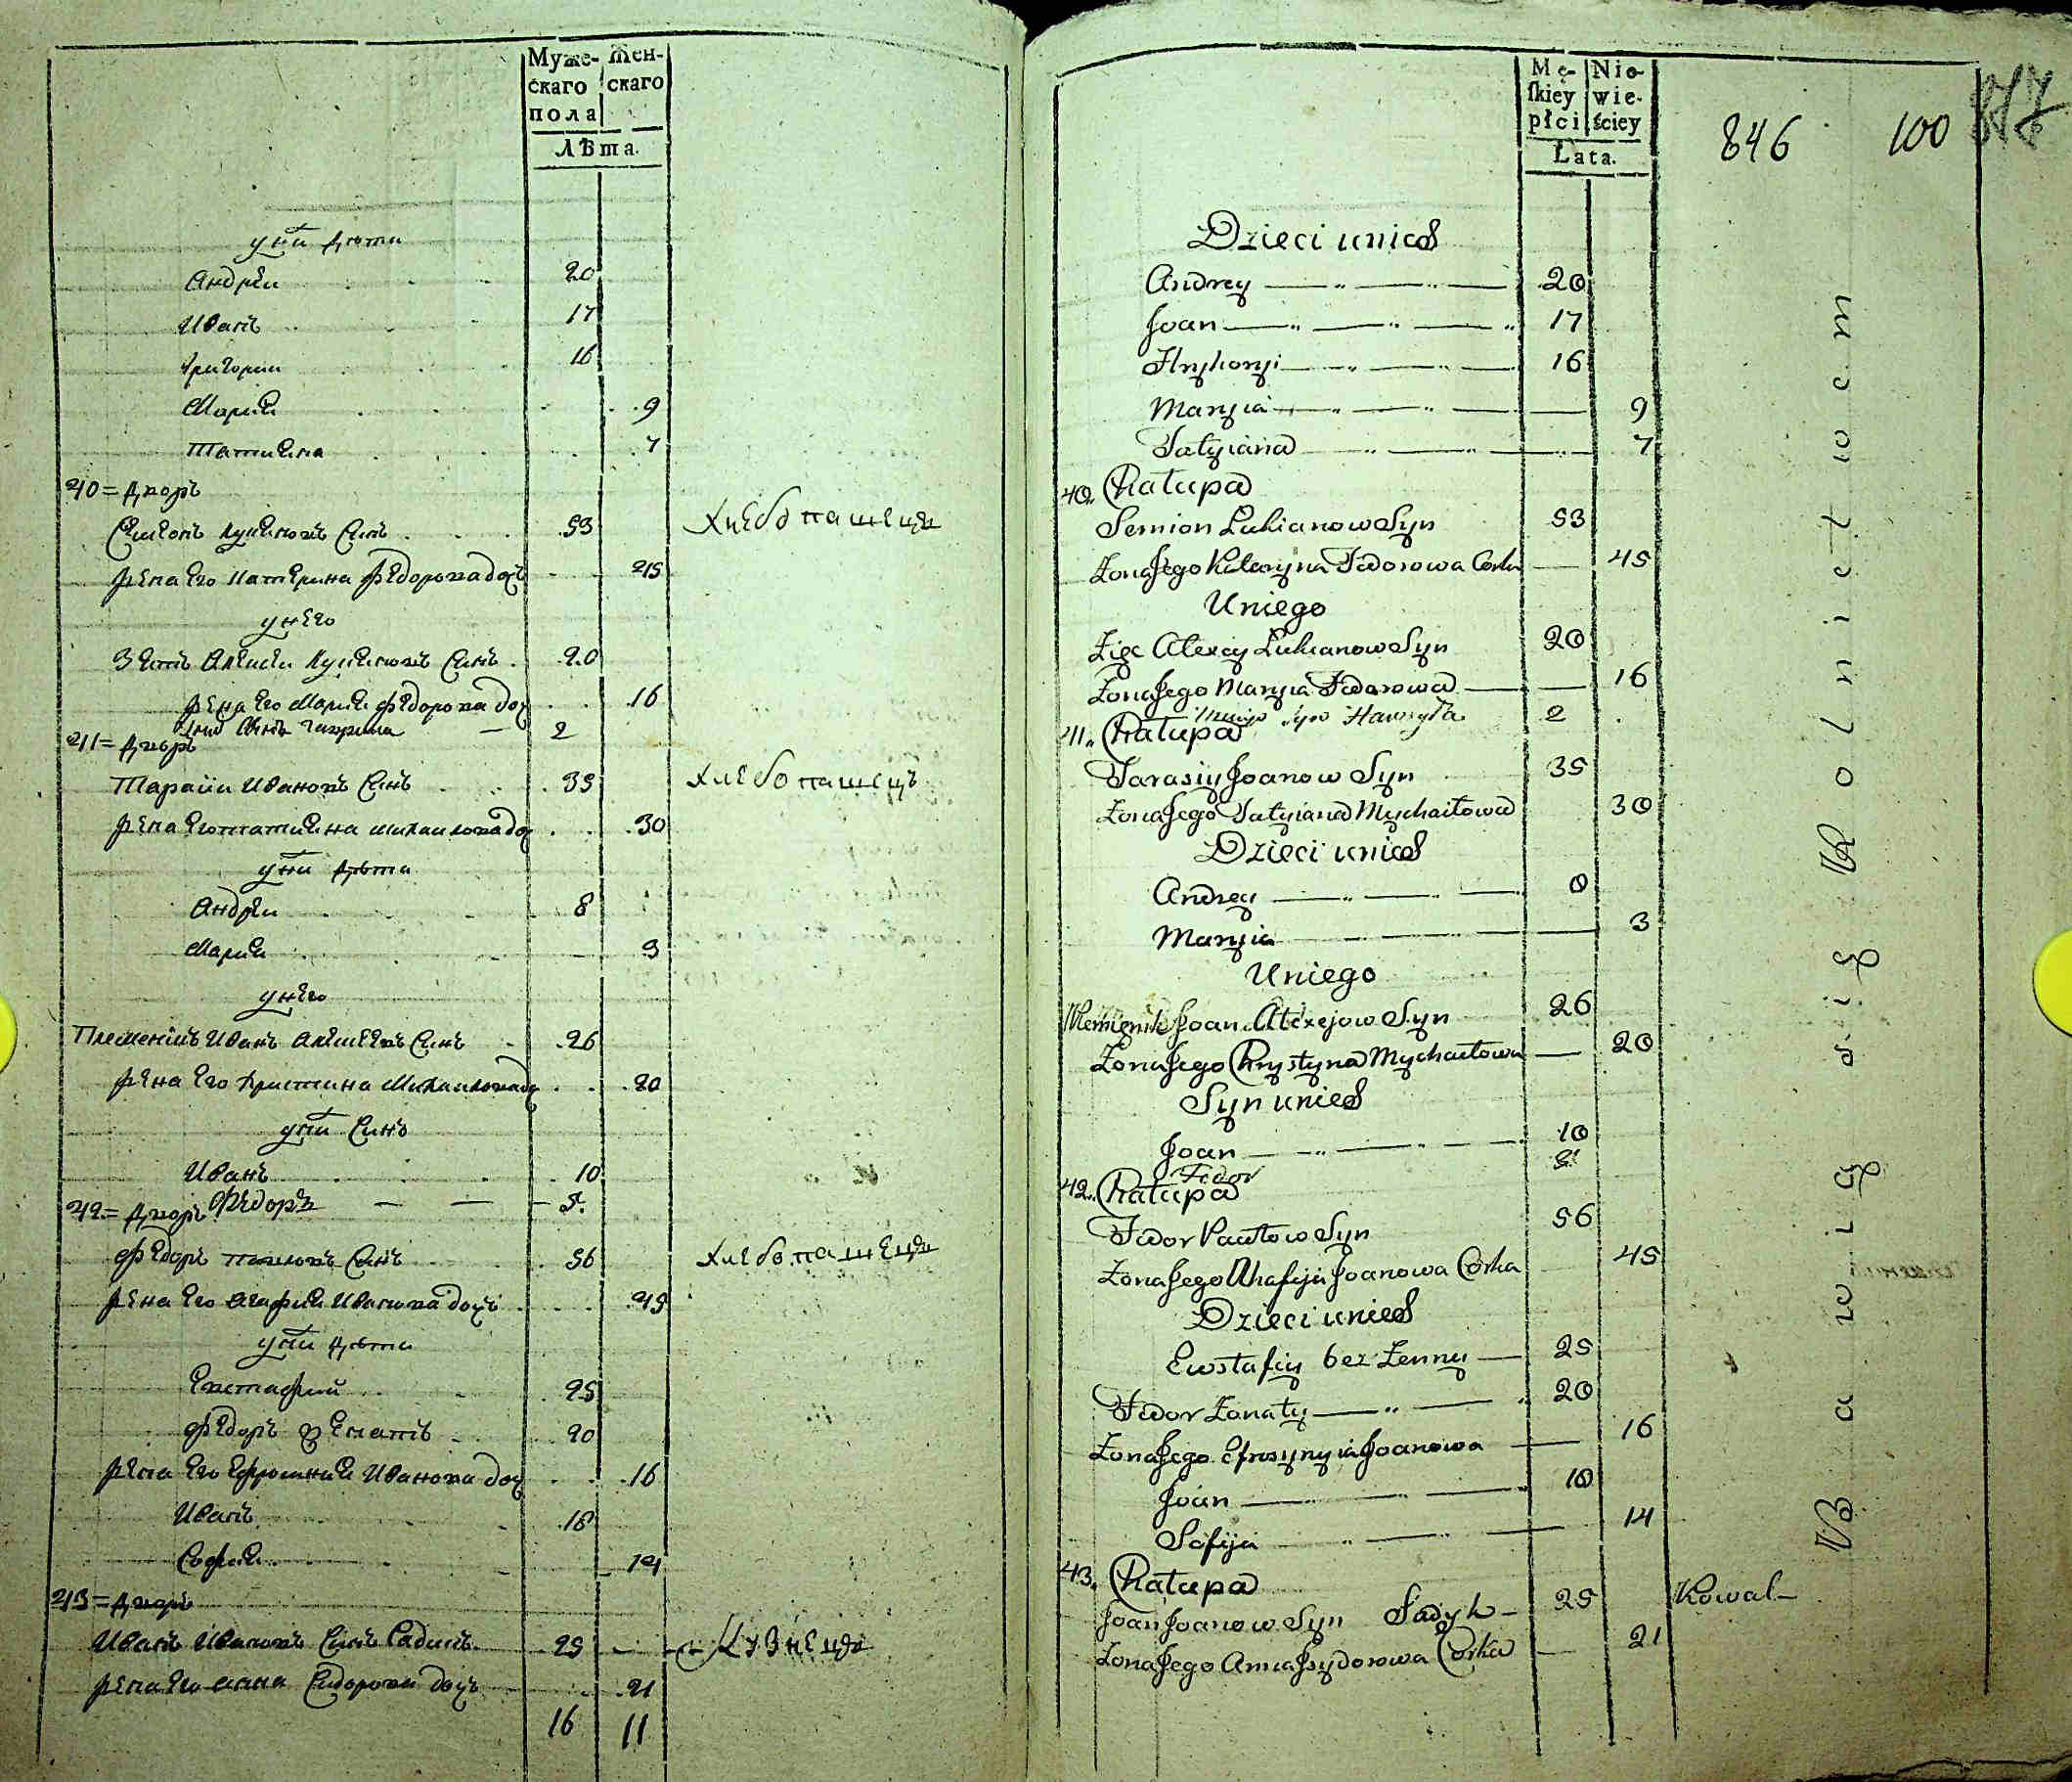 Муже-
скаго
пола
Жен-
скаго
Лѣта.
у них дѣти
Андрей 20
Иванъ 17
Григории 16
Мария 9
Татиана 7
40 = Дворъ
Симеонъ Лукяновъ Синъ 53 Хлебопашецъ
жена Его Катерина Федорова дочъ 45
у него
Зять Алексеи Лукяновъ Синъ 20
жена Его Мария Федорова доч 16
у них Синъ Гаврила — 2
41 = Дворъ
Тарасии Ивановъ Синъ 35 Хлебопашецъ
жена Его Татиана Михаилова доч 30
у них дѣти
Андреи 8
Мария 3
у него
Племеникъ Иванъ Алексеевъ Синъ 26
жена Его Христина Михаилова доч 20
у них Синъ
Иванъ 10
Федоръ — — 5.
42 = Дворъ
Федоръ Павловъ Синъ 56 Хлебопашецъ
жена Его Агафия Иванова дочъ 45
у них дѣти
Евстафий 25
Федоръ женатъ 20
жена Его Ефросиния Иванова доч 16
Иванъ 18
София 14
43 = Дворъ
Иванъ Ивановъ Синъ Садикъ 25 Кузнецъ
жена Его Анна Сидорова дочъ 21
16 11
Mę-
ſkiey
płci
Nie-
wie-
ściey
Lata.
846 100 847
Dzieci unich
Andrey 20
Joan 17
Hryhoryi 16
Maryia 9
Tatyiana 7
40. Chałupa
Semion Lukianow Syn 53
Żona Jego Kateryna Fedorowa Corka 45
Uniego
Zięc Alexiy Lukianow Syn 20
Żona Jego Maryia Fedorowa 16
Unich Syn Hawryła 2
41. Chałupa
Tarasiy Joanow Syn 35
Żona Jego Tatyiana Mychaiłowa 30
Dzieci unich
Andrey 8
Maryia 3
Uniego
Plemienik Joan Alexejow Syn 26
Żona Jego Chrystyna Mychaiłowa 20
Syn unich
Joan 10
Fedor 5
42. Chałupa
Fedor Pawłow Syn 56
Żona Jego Ahafija Joanowa Corka 45
Dzieci unich
Ewstafiy bez Żenny 25
Fedor Żonaty 20
Żona Jego Efrosynyia Joanowa 16
Joan 18
Sofija 14
43. Chałupa
Joan Joanow Syn Sadyk 25 Kowal
Żona Jego Anna Jsydorowa Corka 21